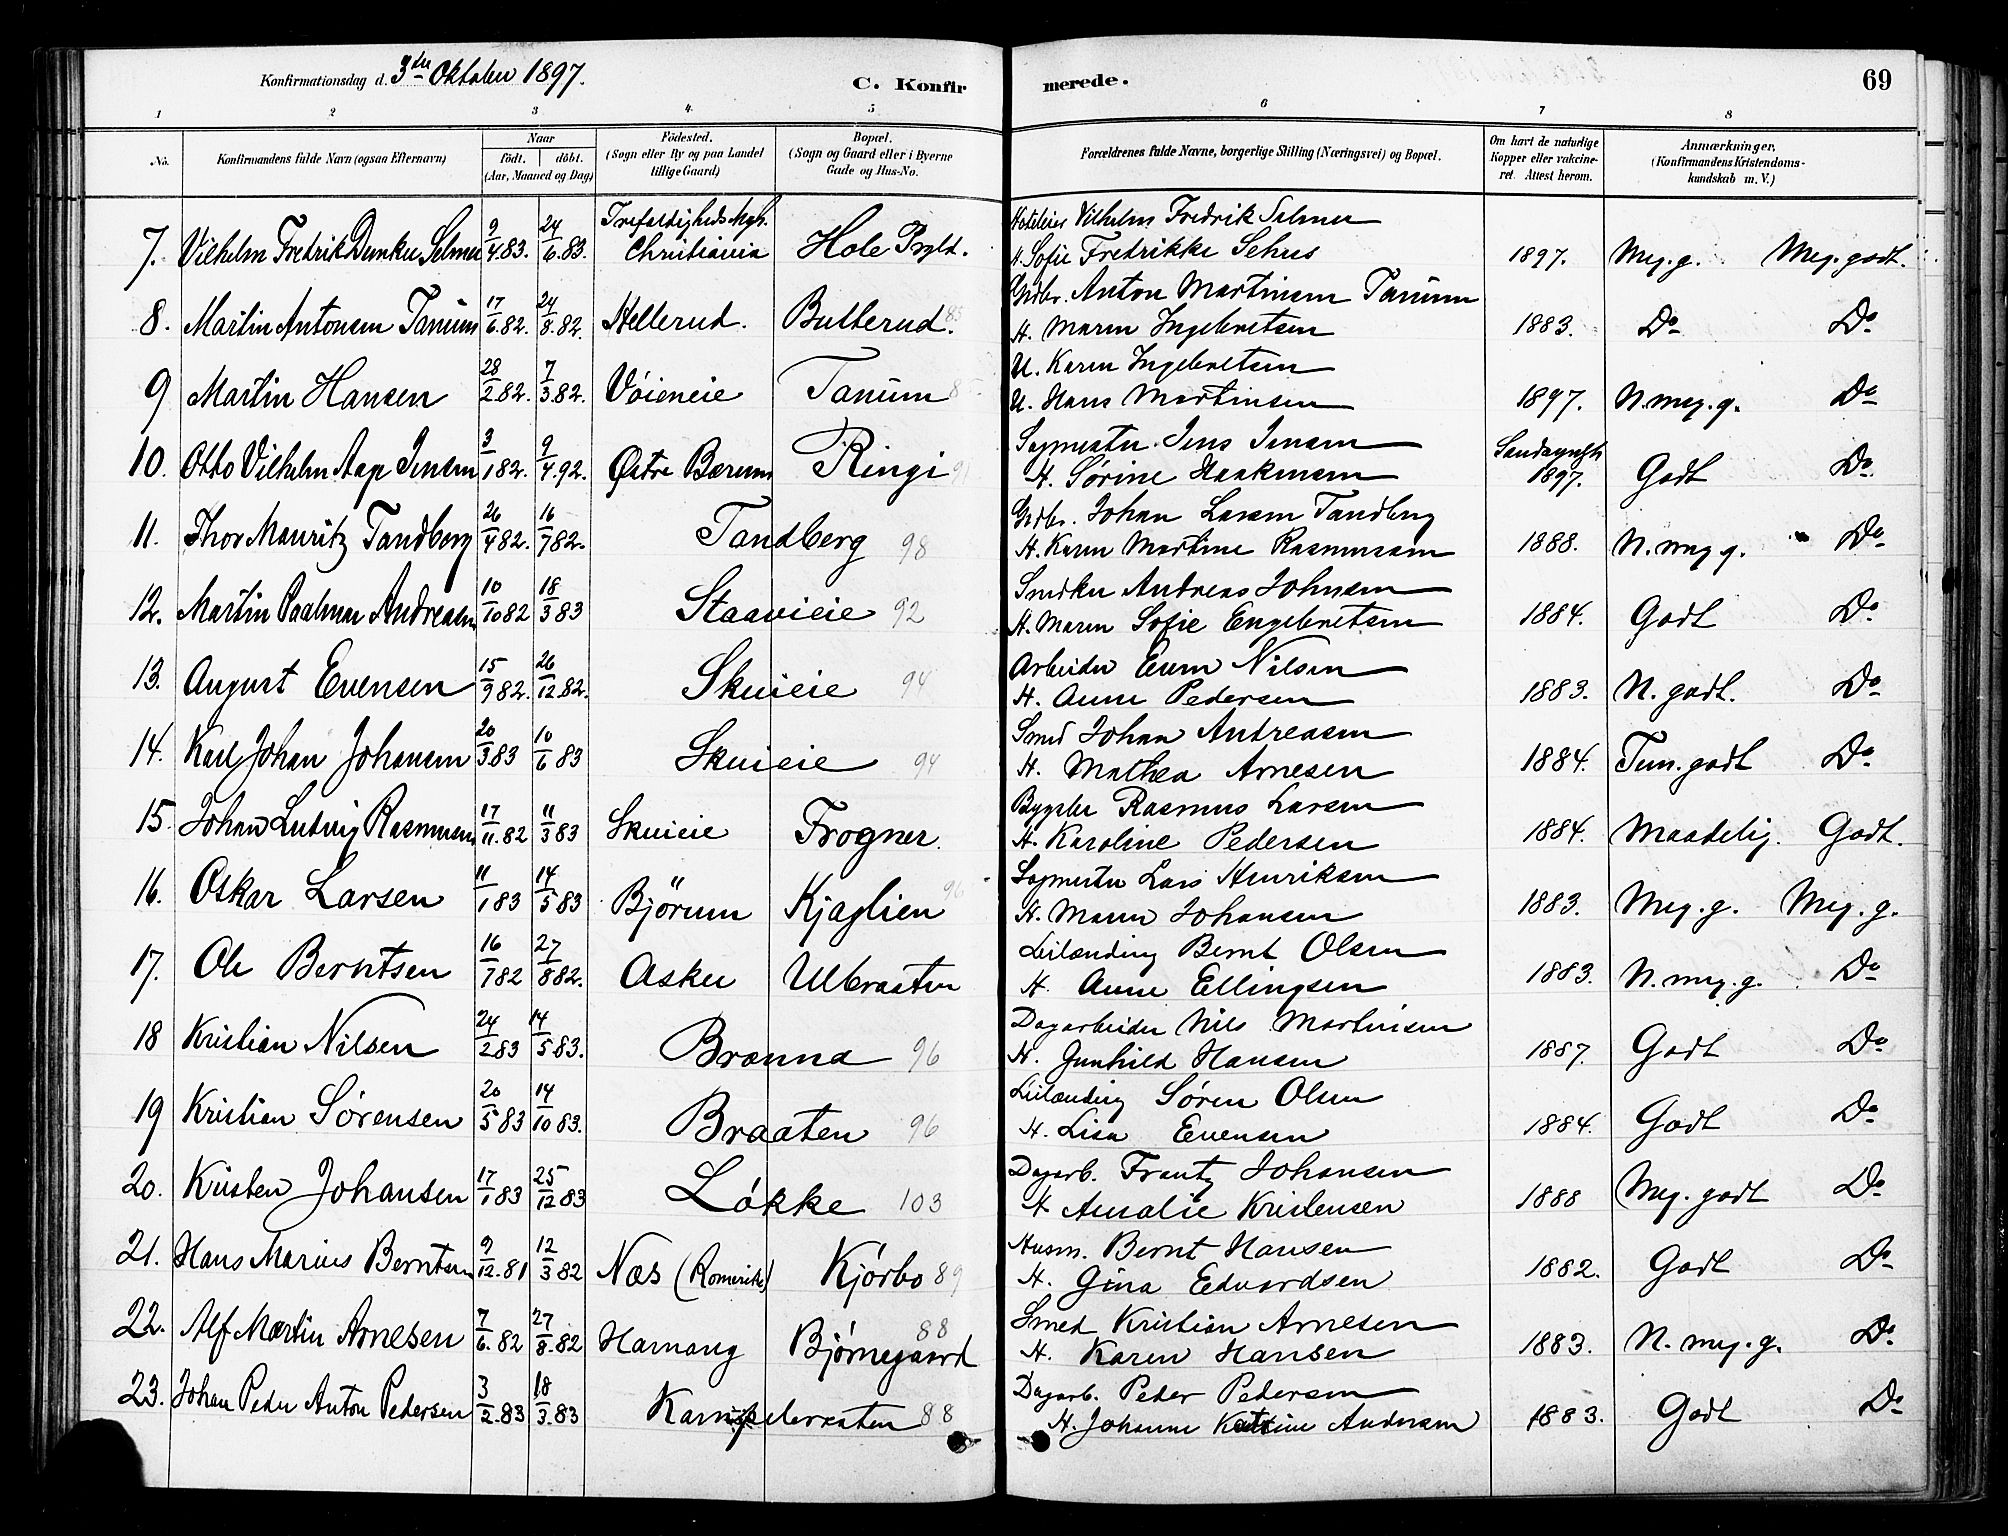 Konfirmationsdag d. 3die Oktober 1897.
C. Konfirmerede.
69
1 2 3 4. 5 6 7 8
No. Konfirmandens fulde Navn (ogsaa Efternavn) Naar födt. döbt. (Aar, Maaned og Dag) Födested. (Sogn eller By og paa Landet tillige Gaard) Bopæl. (Sogn og Gaard eller i Byerne Gade og Hus-No. Forældrenes fulde Navne, borgerlige Stilling (Næringsvei) og Bopæl. Om havt de naturlige Kopper eller vakcineret. Attest herom. Anmærkninger, (Konfirmandens Kristendomskundskab m. V.)
7. Vilhelm Fredrik Dunker Selmer 9/4 83. 24/6 83. Trefoldigheds Mgh. Christiania Hole Prgld. Vilhelm Fredrik Selmer
H. Sofie Fredrikke Sehus 1897. Meg. g. Meg. godt.
8. Martin Antonsen Tanum 17/6 82. 24/8 82. Hellerud. Butterud. 85 Grdbr. Anton Martinsen Tanum
H. Maren Ingebretsen 1883. Do Do
9 Martin Hansen 28/2 82. 7/3 82. Vöieneie Tanum U. Karen Ingebretsen
U. Hans Martinsen 1897. N. meg. g. Do
10. Otto Vilhelm Aap Jensen 3/1 82. 9/4 92. Østre Bærum Ringi Sagmester Jens Jensen
H. Sørine Haakensen 1897. Godt Do
11. Thor Mauritz Tandberg 26/4 82. 16/7 82. Tandberg 98 Grdbr. Johan Larsen Tandberg
H. Karen Martine Rasmussen 1888. N. meg g. Do
12. Martin Paalmar Andreasen 10/10 82 18/3 83 Staavieie 92 Snedker Andreas Johnsen
H. Maren Sofie Engebretsen 1884. Godt Do
13. August Evensen 15/9 82. 26/12 82. Skuieie 94 Arbeider Even Nilsen
H. Anne Pedersen 1883. N. godt. Do
14. Karl Johan Johansen 20/3 83 10/6 83 Skuieie 94 Smed Johan Andreasen
H. Mathea Arnesen 1884. Tem. godt Do
15. Johan Ludvig Rasmussen 17/11. 82 11/3 83 Skuieie Frogner. Bygsler Rasmus Larsen
H. Karoline Pedersen 1884. Maadelig. Godt.
16. Oskar Larsen 11/1 83 14/5 83 Bjørum Kjaglien 96 Sagmester Lars Henriksen
H. Maren Johansen 1883. Meg. g. Meg. g.
17. Ole Berntsen 16/7 82 27/8 82. Asker Ulbraaten Leilænding Bernt Olsen
H. Anne Ellingsen 1883. N. meg. g. Do
18 Kristian Nilsen 24/2 83 14/5 83. Brænna 96 Dagarbeider Nils Martinsen
H. Gunhild Hansen 1887. Godt Do
19 Kristian Sørensen 20/5 83 14/10 83. Braaten 96 Leilænding Søren Olsen
H. Lisa Evensen 1884. Godt Do
20. Kristen Johansen 17/1 83 25/12 83 Løkke 103 Dagarb. Frantz Johansen
H Amalie Kristensen 1888 Meg. godt Do
21. Hans Marius Berntsen 9/12. 81 12/3 82 Næs (Romerike) Kjørbo 89 Husm. Bernt Hansen
H. Gina Edvardsen 1882. Godt Do
22. Alf Martin Arnesen 7/6. 82 27/8. 82 Hamang Bjørnegaard 88 Smed Kristian Arnesen
H. Karen Hansen 1883. N. meg. g. Do
23. Johan Peder Anton Pedersen 3/2. 83 18/3. 83 88 Dagarb. Peder Pedersen
H. Johanne Katrine Andersen 1883. Godt Do